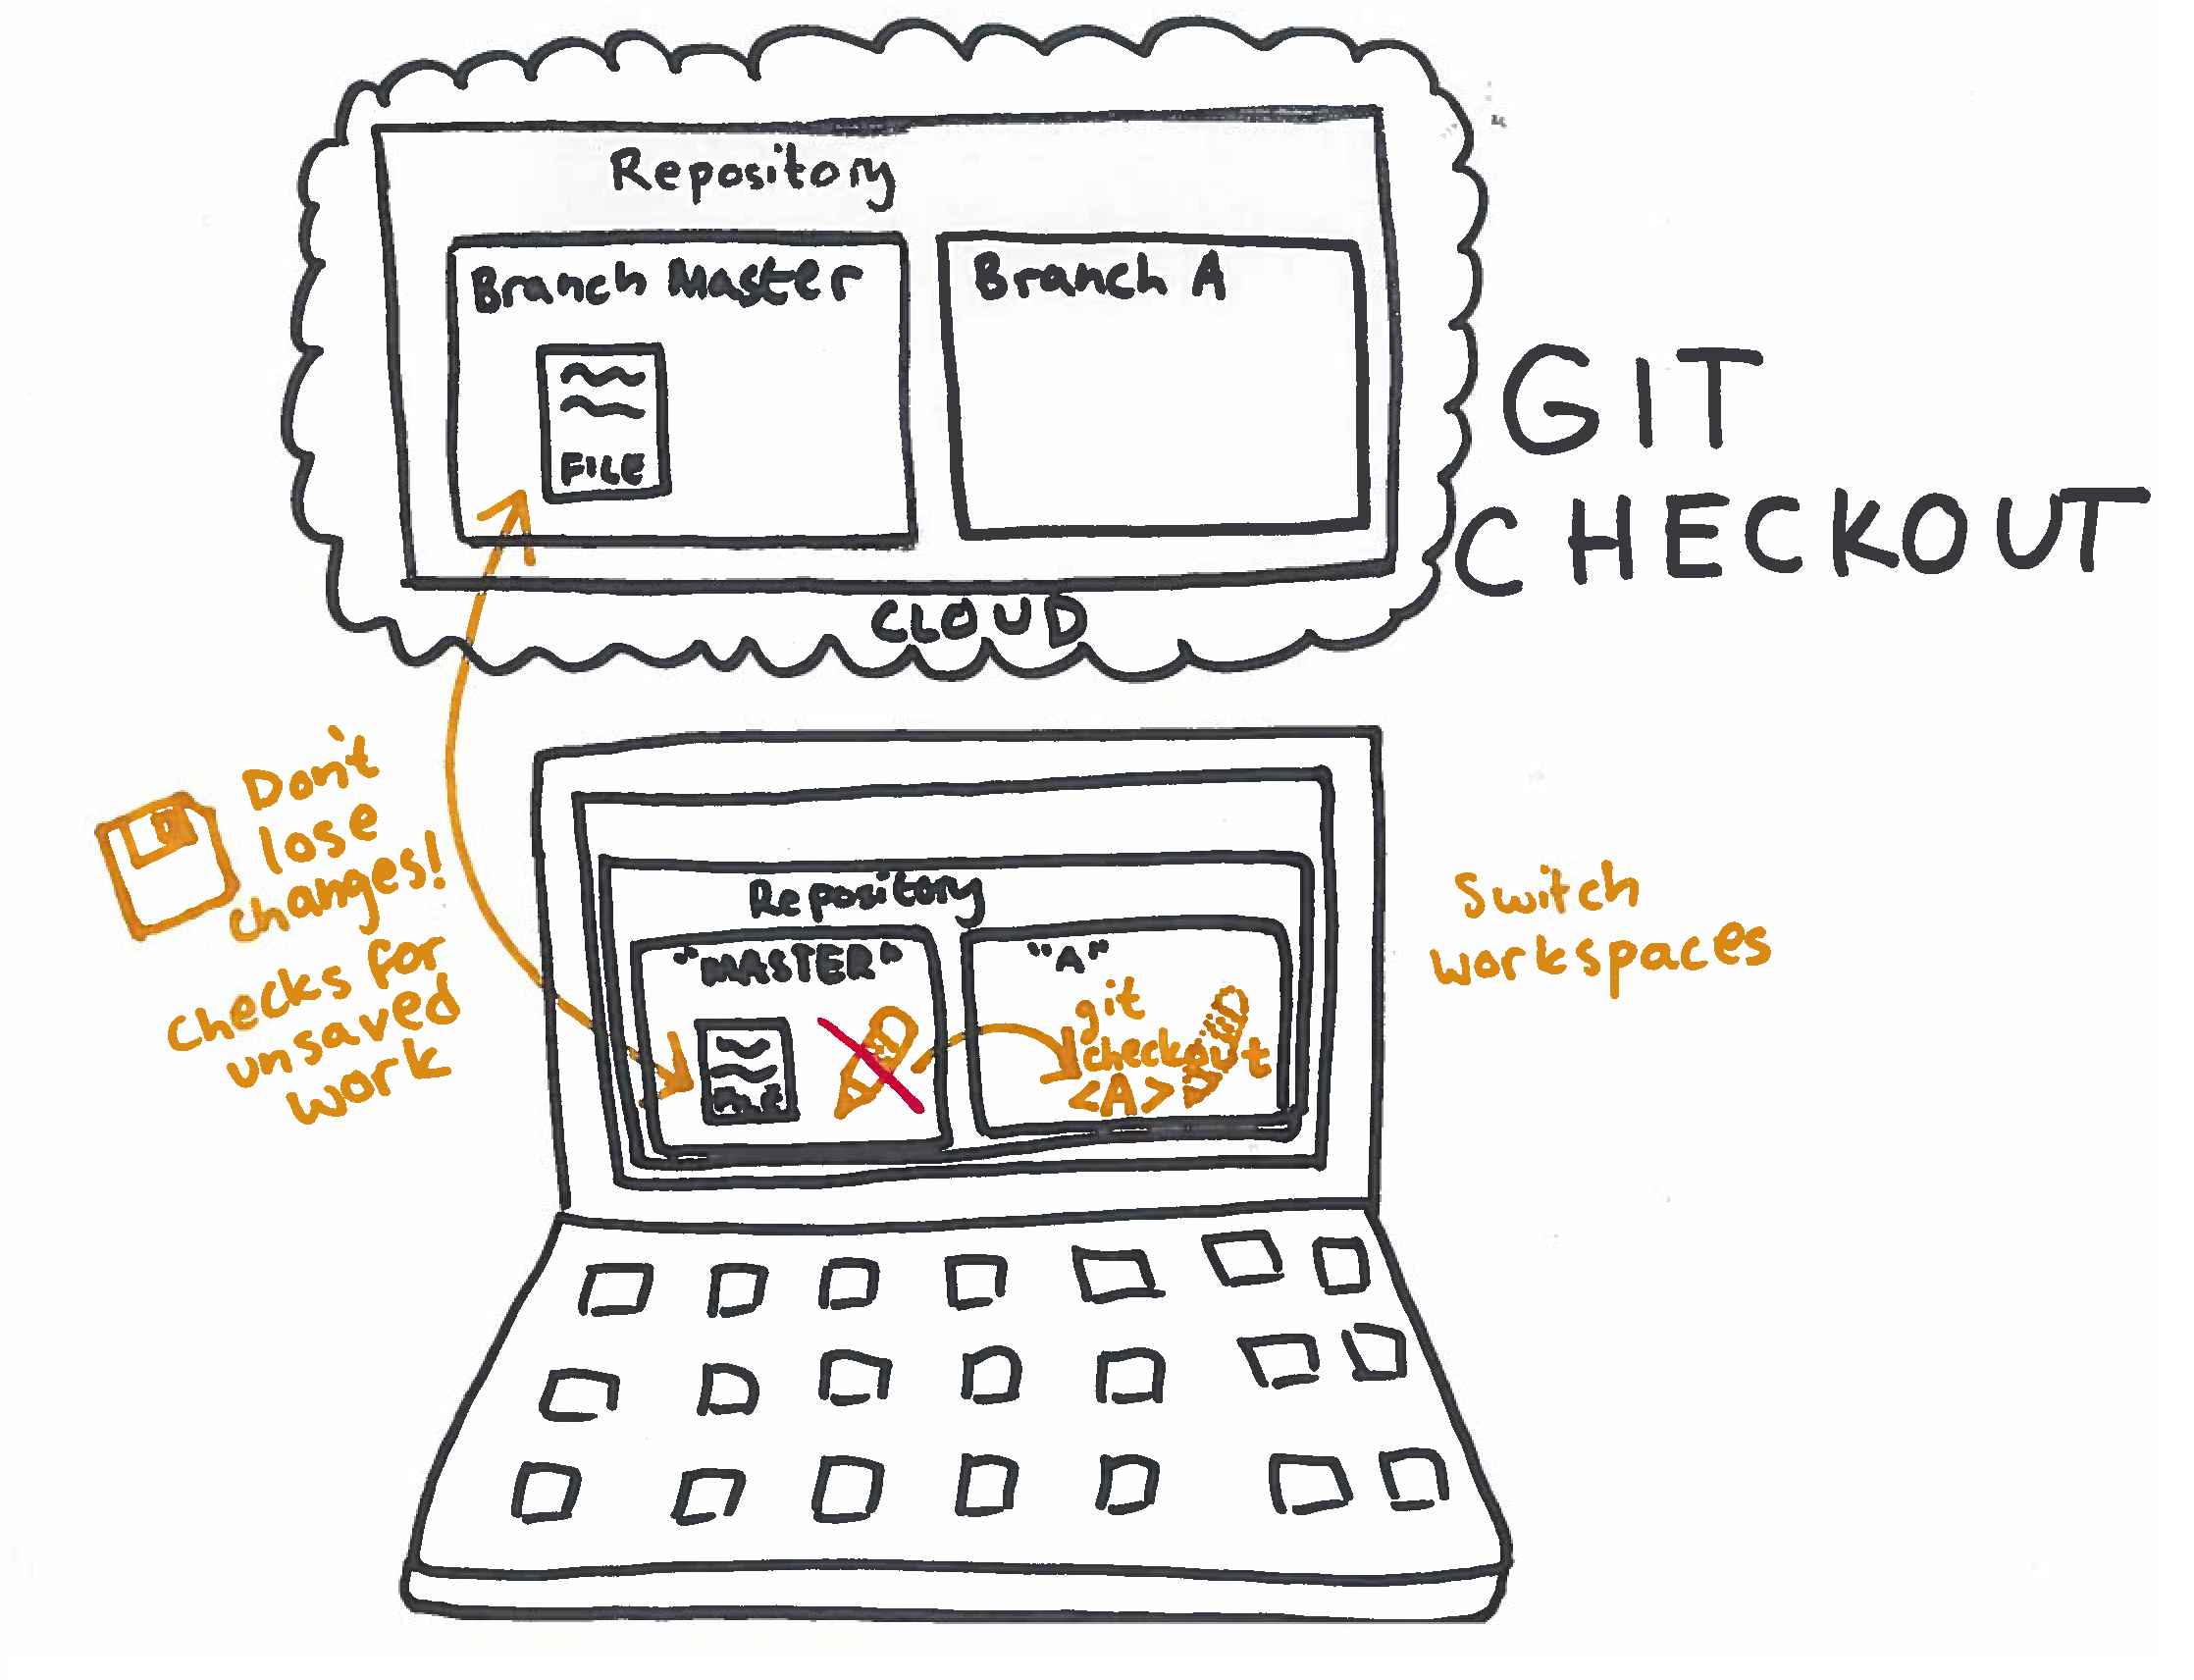 Repository
Branch Master
Branch A
FILE
CLOUD
GIT
CHECKOUT
Don't
lose
changes!
checks for
unsaved
work
Repository
"MASTER"
FILE
"A"
git
checkout
<A>
Switch
workspaces